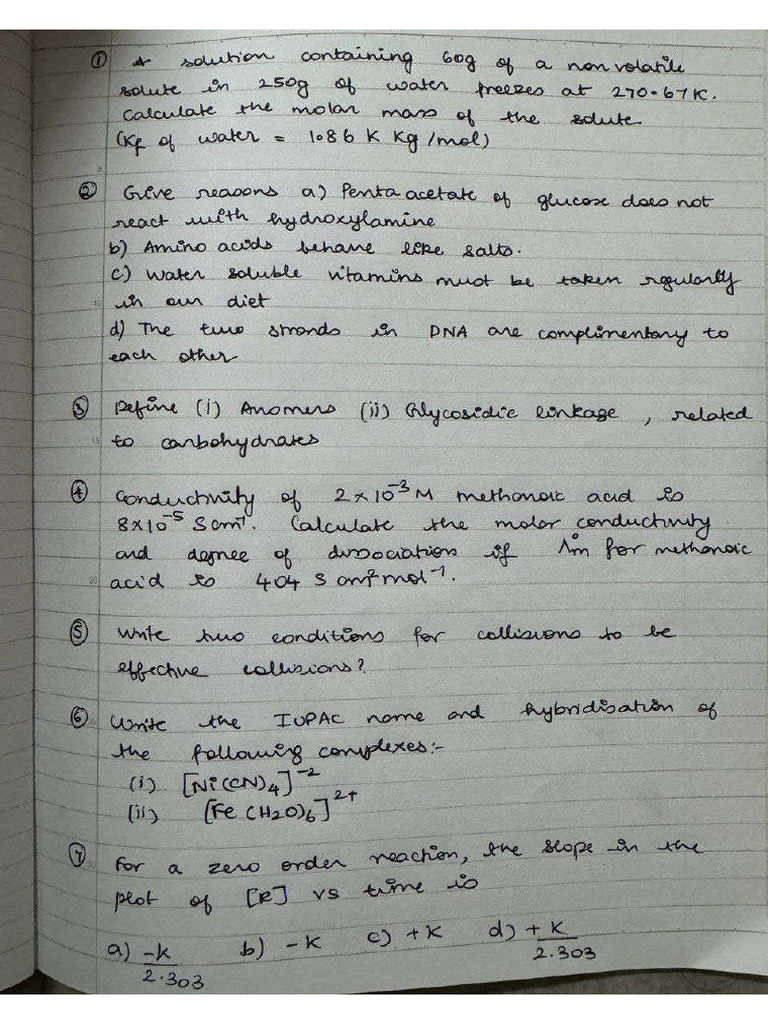 ① A solution containing 60g of a non volatile
solute in 250g of water freezes at 270.67K.
Calculate the molar mass of the solute
(Kf of water = 1.86 K Kg/mol)
② Give reasons a) Penta acetate of glucose does not
react with hydroxylamine
b) Amino acids behave like salts.
c) Water soluble vitamins must be taken regularly
in our diet
d) The two strands in DNA are complimentary to
each other
③ Define (i) Anomers (ii) Glycosidic linkage, related
to carbohydrates
④ Conductivity of 2×10⁻³M methanoic acid is
8×10⁻⁵ S cm⁻¹. Calculate the molar conductivity
and degree of dissociation if Λ°m for methanoic
acid is 404 S cm² mol⁻¹.
⑤ Write two conditions for collisions to be
effective collisions?
⑥ Write the IUPAC name and hybridisation of
the following complexes:-
(i) [Ni(CN)₄]⁻²
(ii) [Fe(H2O)₆]²⁺
⑦ For a zero order reaction, the slope in the
plot of [R] vs time is
a) -K/2.303 b) -K c) +K d) +K/2.303